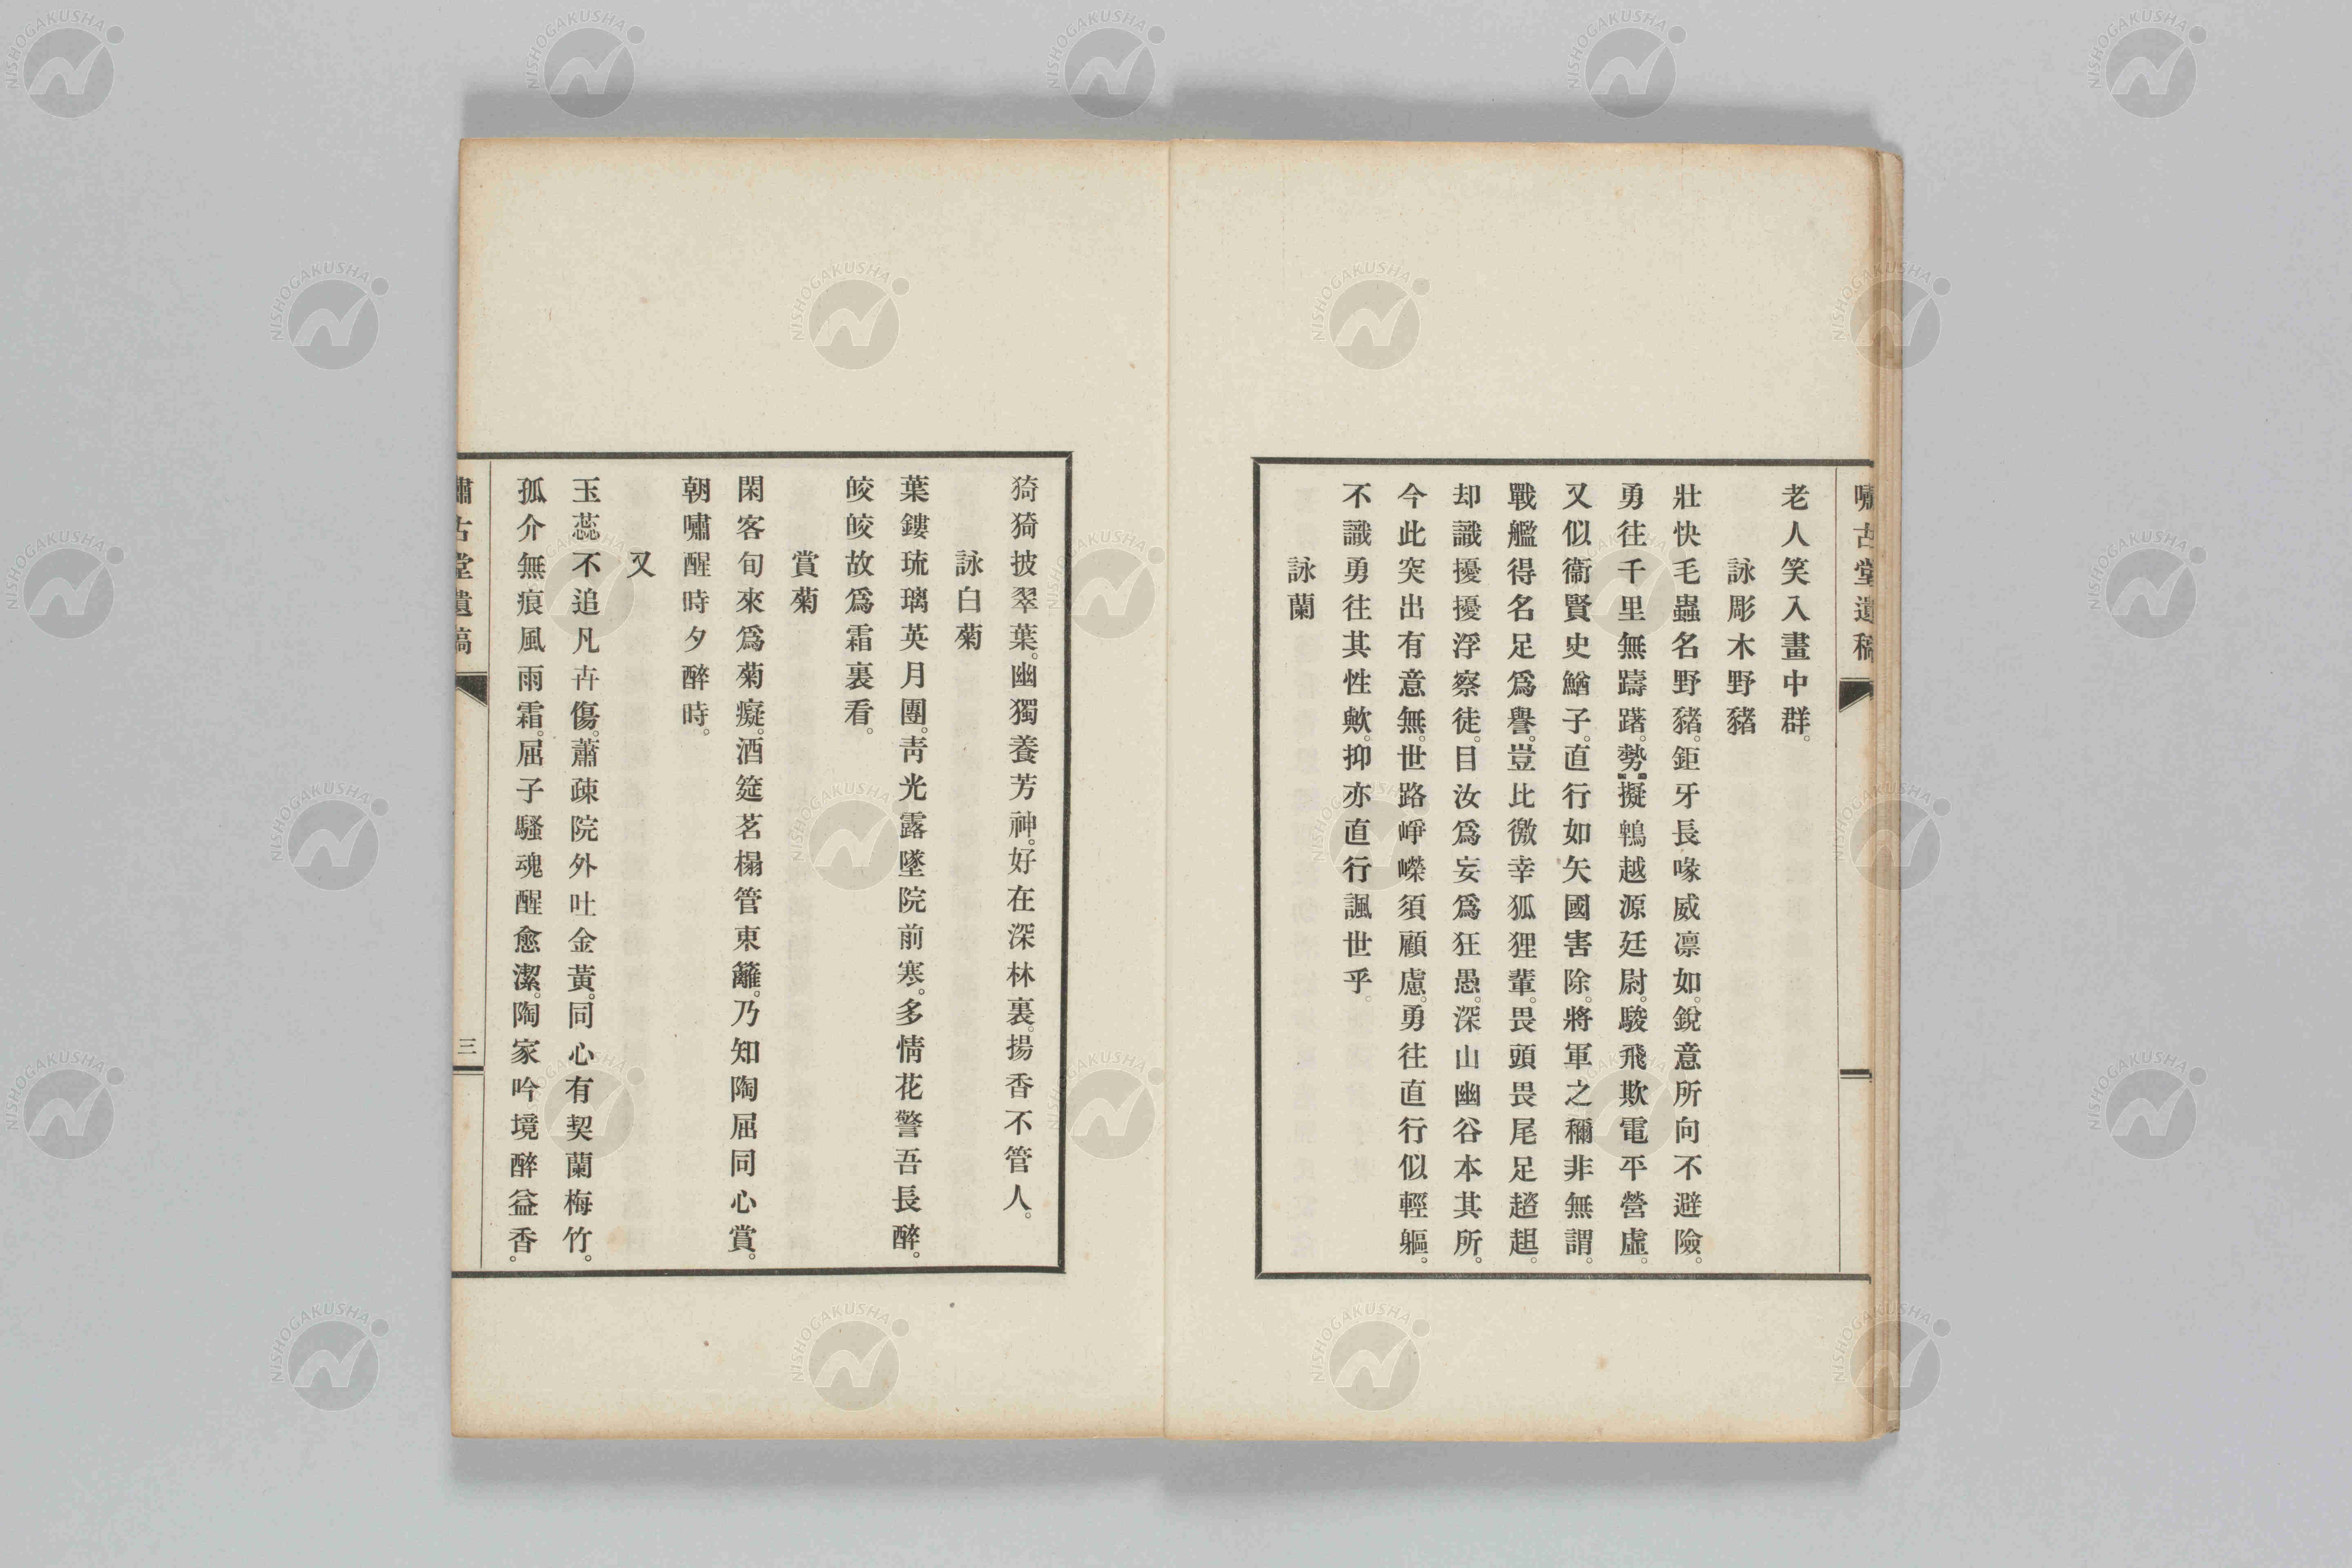 嘯古堂遺稿
老人笑入畫中群。
詠彫木野豬
壯快毛蟲名野豬。鉅牙長喙威凛如。銳意所向不避險。
勇往千里無躊躇。勢擬鵯越源廷尉。駿飛欺電平營虛。
又似衞賢史鰌子。直行如矢國害除。將軍之稱非無謂。
戰艦得名足爲譽。豈比徼幸狐狸輩。畏頭畏尾足趦趄。
却識擾擾浮察徒。目汝爲妄爲狂愚。深山幽谷本其所。
今此突出有意無。世路崢嶸須顧慮。勇往直行似輕軀。
不識勇往其性歟。抑亦直行諷世乎。
詠蘭
猗猗披翠葉。幽獨養芳神。好在深林裏。揚香不管人。
詠白菊
葉鏤琉璃英月團。靑光露墜院前寒。多情花警吾長醉。
皎皎故爲霜裏看。
賞菊
閑客旬來爲菊癡。酒筵茗榻管東籬。乃知陶屈同心賞。
朝嘯醒時夕醉時。
又
玉蕊不追凡卉傷。蕭疎院外吐金黃。同心有契蘭梅竹。
孤介無痕風雨霜。屈子騷魂醒愈潔。陶家吟境醉益香。
嘯古堂遺稿
三
NISHOGAKUSHA